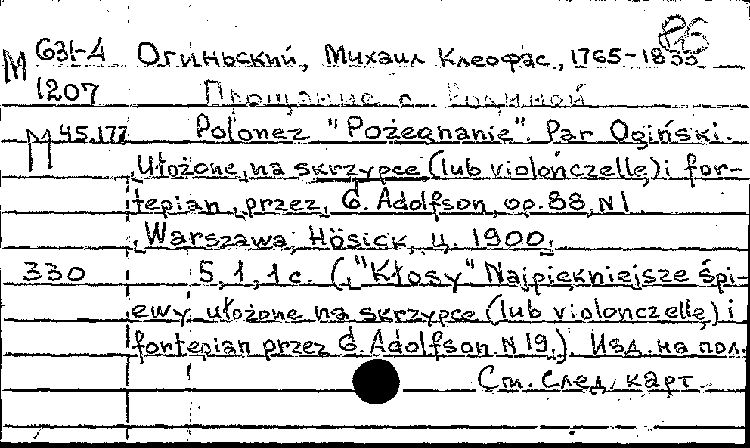 М 631-4 Огиньский, Михаил Клеофас, 1765-1833
1207 Прощание с Родиной
М 45.177 Polonez "Pożegnanie". Par Ogiński.
Ułożone na skrzypce (lub violonczellę) i for-
tepian przez G. Adolfson, op. 88, N 1.
Warszawa, Hösick, ц. 1900.
330 5, 1, 1 с. ("Kłosy" Najpiękniejsze śpi-
ewy ułożone na skrzypce (lub violonczellę) i
fortepian przez G. Adolfson N 19.). Изд. на пол.
См. след. карт.